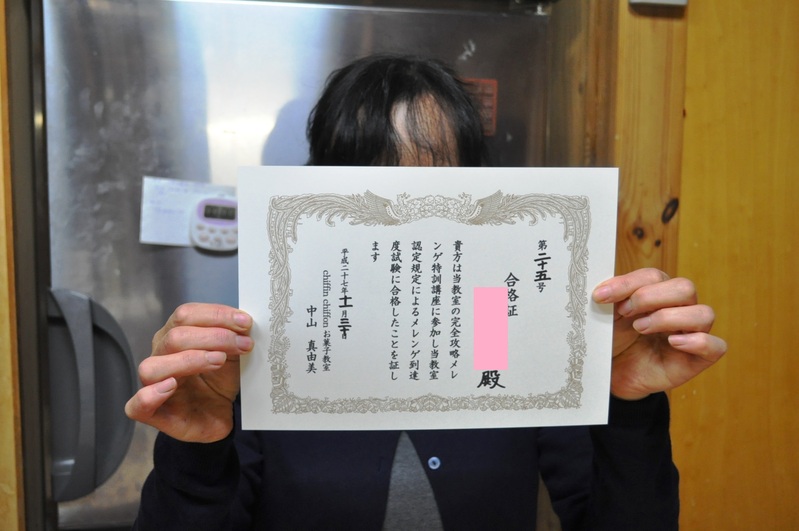 第二十五号
合格証
殿
貴方は当教室の完全攻略メレ
ンゲ特訓講座に参加し当教室
認定規定によるメレンゲ到達
度試験に合格したことを証し
ます
平成二十七年十一月三十日
chiffin chiffon お菓子教室
中山 真由美